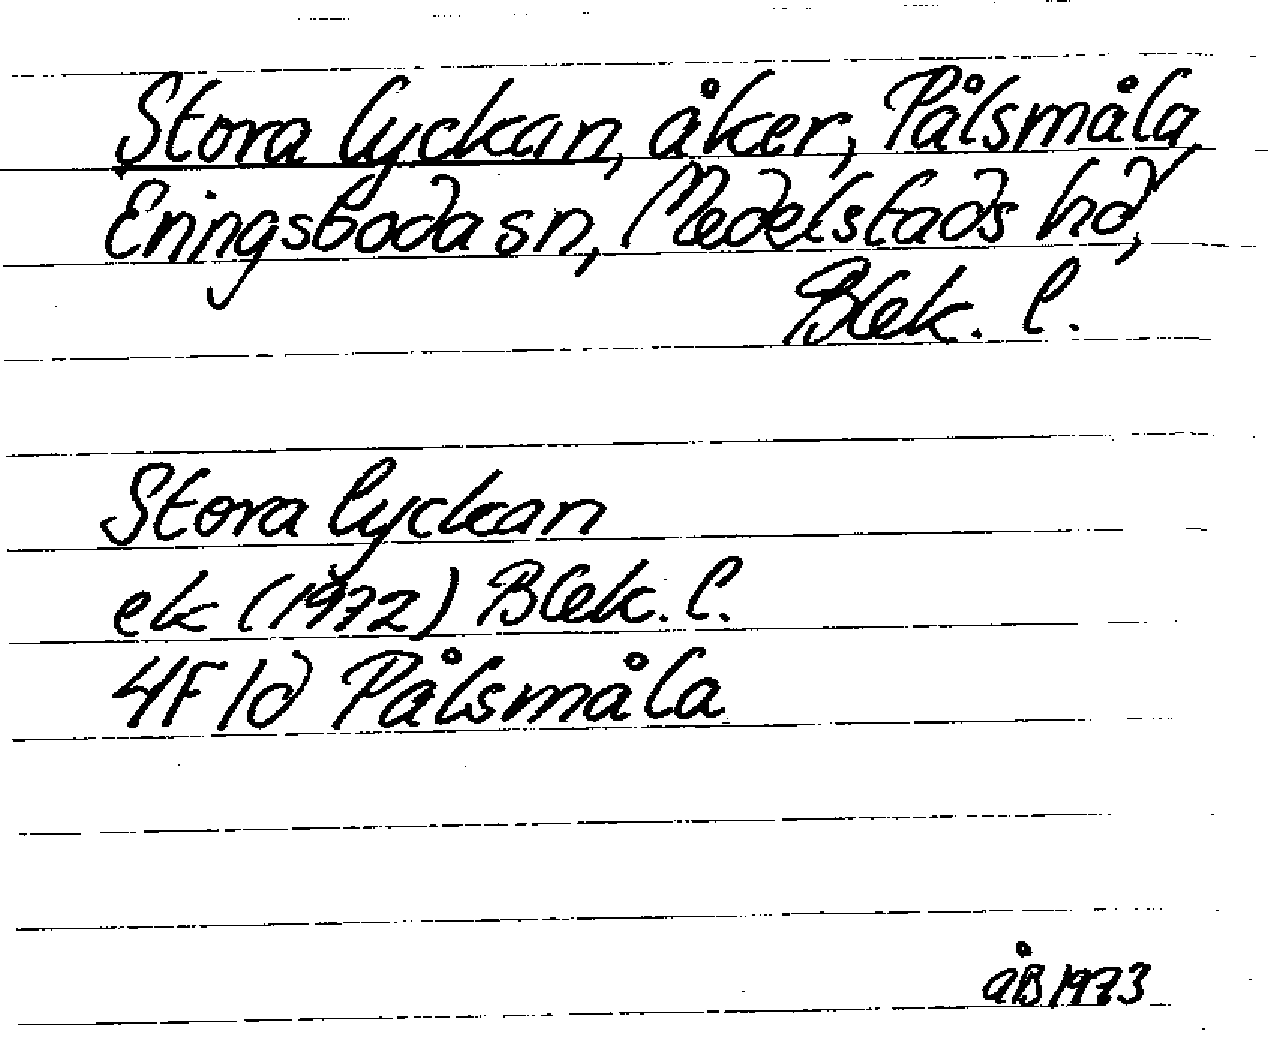 Stora lyckan, åker, Pålsmåla,
Eringsboda sn, Medelstads hd,
Blek. l.
Stora lyckan
ek (1972) Blek. l.
4F 1d Pålsmåla
åB 1973